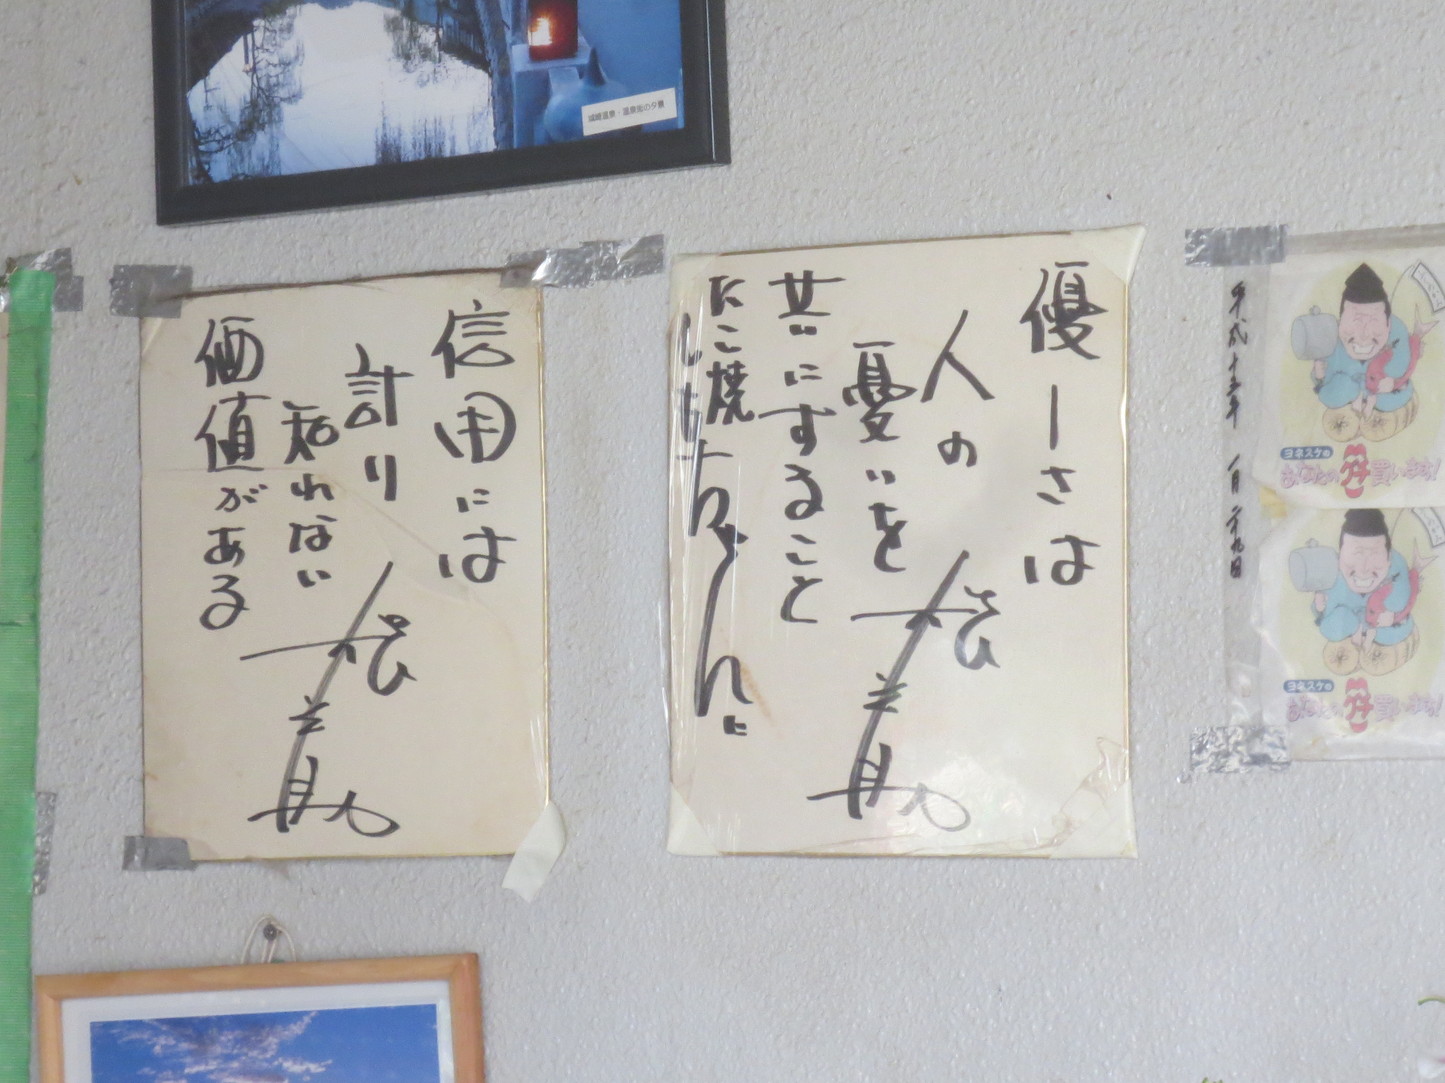 城崎温泉・温泉街の夕暮
信用には
計り
知れない
価値がある
優しさは
人の
憂いを
共にすること
たこ焼
平成十五年 一月 二十九日
ヨネスケの
あなたの
買います!
ヨネスケの
あなたの
買います!